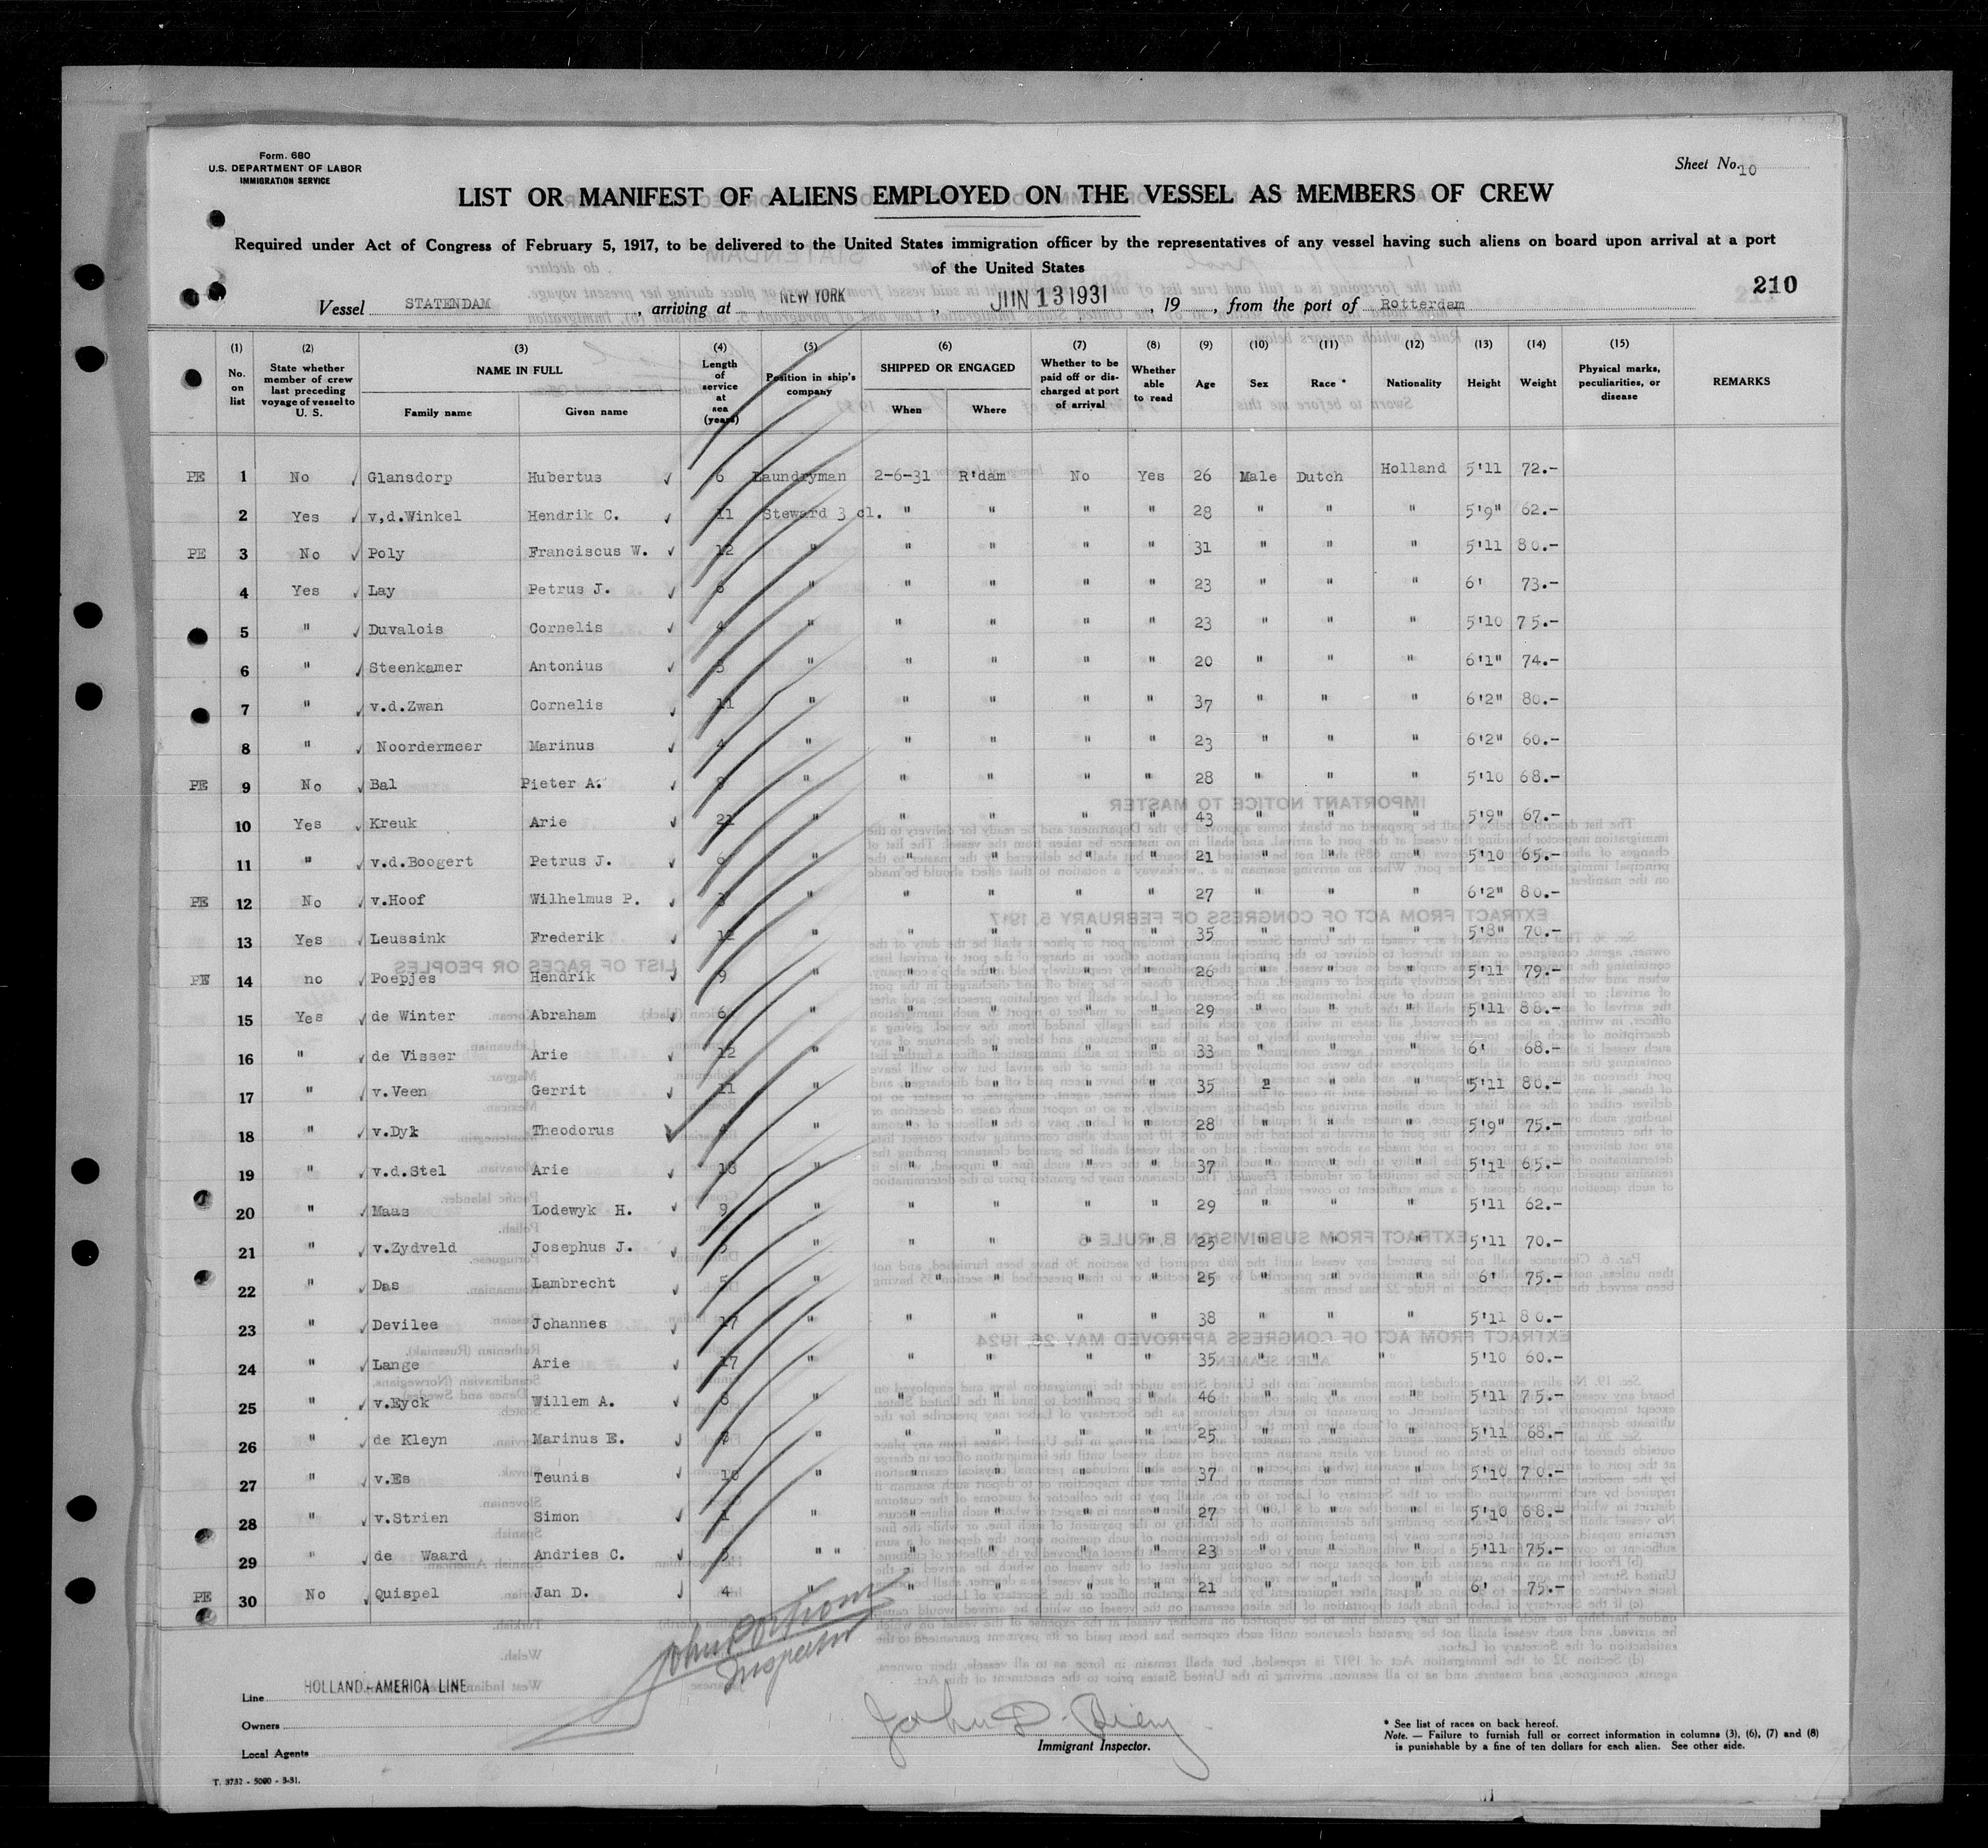 Form. 680
U.S. DEPARTMENT OF LABOR
IMMIGRATION SERVICE
Sheet No. 10
LIST OR MANIFEST OF ALIENS EMPLOYED ON THE VESSEL AS MEMBERS OF CREW
Required under Act of Congress of February 5, 1917, to be delivered to the United States immigration officer by the representatives of any vessel having such aliens on board upon arrival at a port
of the United States
210
Vessel STATENDAM, arriving at NEW YORK, JUN 13 1931, 19, from the port of Rotterdam
(1) No. on list (2) State whether member of crew last preceding voyage of vessel to U. S. (3) NAME IN FULL Family name Given name (4) Length of service at sea (years) (5) Position in ship's company (6) SHIPPED OR ENGAGED When Where (7) Whether to be paid off or discharged at port of arrival (8) Whether able to read (9) Age (10) Sex (11) Race * (12) Nationality (13) Height (14) Weight (15) Physical marks, peculiarities, or disease REMARKS
PE 1 No Glansdorp Hubertus 6 Laundryman 2-6-31 R'dam No Yes 26 Male Dutch Holland 5'11 72.-
2 Yes v,d.Winkel Hendrik C. 11 Steward 3 cl. " " " " 28 " " " 5'9" 62.-
PE 3 No Poly Franciscus W. 12 " " " " " 31 " " " 5'11 80.-
4 Yes Lay Petrus J. " " " " " 23 " " " 6' 73.-
5 " Duvalois Cornelis 4 " " " " " 23 " " " 5'10 75.-
6 " Steenkamer Antonius " " " " " 20 " " " 6'1" 74.-
7 " v.d.Zwan Cornelis 11 " " " " " 37 " " " 6'2" 80.-
8 " Noordermeer Marinus 4 " " " " " 23 " " " 6'2" 60.-
PE 9 No Bal Pieter A. " " " " " 28 " " " 5'10 68.-
10 Yes Kreuk Arie 21 " " " " " 43 " " " 5'9" 67.-
11 " v.d.Boogert Petrus J. " " " " " 21 " " " 5'10 65.-
PE 12 No v.Hoof Wilhelmus P. " " " " " 27 " " " 6'2" 80.-
13 Yes Leussink Frederik 12 " " " " " 35 " " " 5'8" 70.-
PE 14 no Poepjes Hendrik 9 " " " " " 26 " " " 5'11 79.-
15 Yes de Winter Abraham 6 " " " " " 29 " " " 5'11 88.-
16 " de Visser Arie 12 " " " " " 33 " " " 6' 68.-
17 " v.Veen Gerrit 11 " " " " " 35 " " " 5'11 80.-
18 " v.Dyk Theodorus 4 " " " " " 28 " " " 5'9" 75.-
19 " v.d.Stel Arie 18 " " " " " 37 " " " 5'11 65.-
20 " Maas Lodewyk H. 9 " " " " " 29 " " " 5'11 62.-
21 " v.Zydveld Josephus J. " " " " " 25 " " " 5'11 70.-
22 " Das Lambrecht 5 " " " " " 25 " " " 6' 75.-
23 " Devilee Johannes 17 " " " " " 38 " " " 5'11 80.-
24 " Lange Arie 17 " " " " " 35 " " " 5'10 60.-
25 " v.Eyck Willem A. " " " " " 46 " " " 5'11 75.-
26 " de Kleyn Marinus E. " " " " " 25 " " " 5'11 68.-
27 " v.Es Teunis " " " " " 37 " " " 5'10 70.-
28 " v.Strien Simon 1 " " " " " 27 " " " 5'10 68.-
29 " de Waard Andries C. " " " " " " 23 " " " 5'11 75.-
PE 30 No Quispel Jan D. 4 " " " " " 21 " " " 6' 75.-
John
Inspector
Line HOLLAND-AMERICA LINE
Owners
Local Agents
John D.
Immigrant Inspector.
* See list of races on back hereof.
Note. — Failure to furnish full or correct information in columns (3), (6), (7) and (8)
is punishable by a fine of ten dollars for each alien. See other side.
T. 3732 - 5000 - 3-31.